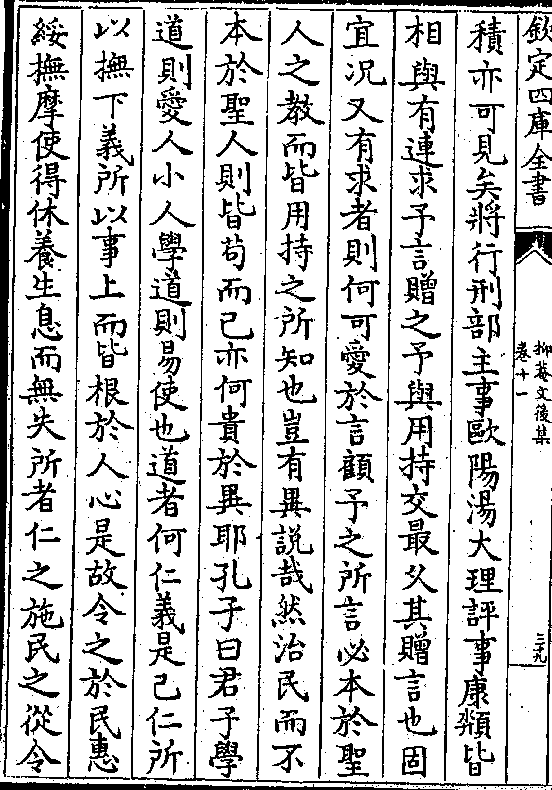 欽定四庫全書
抑菴文後集
卷十一
三九
積亦可見矣將行刑部主事歐陽湯大理評事康纇皆
相與有連求予言贈之予與用持交最久其贈言也固
宜況又有求者則何可愛於言顧予之所言必本於聖
人之教而皆用持之所知也豈有異說哉然治民而不
本於聖人則皆苟而已亦何貴於異耶孔子曰君子學
道則愛人小人學道則易使也道者何仁義是已仁所
以撫下義所以事上而皆根於人心是故令之於民惠
綏撫摩使得休養生息而無失所者仁之施民之從令